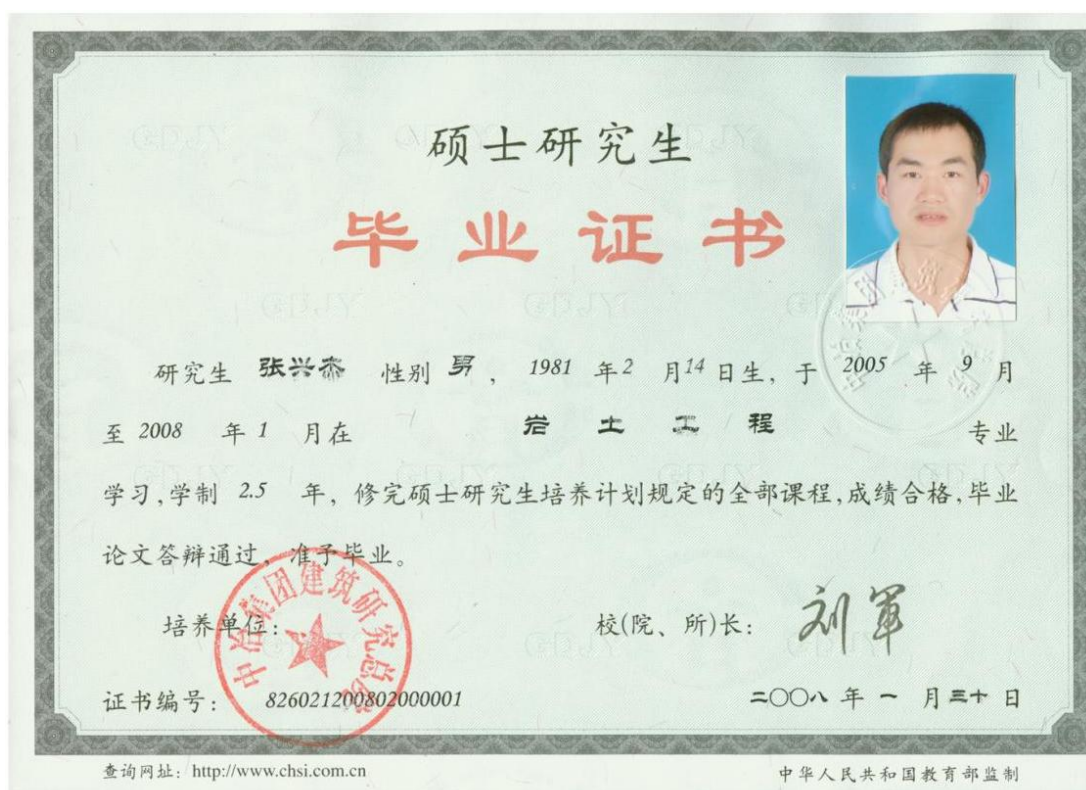 硕士研究生
毕业证书
研究生 张兴杰 性别 男， 1981 年 2 月 14 日生，于 2005 年 9 月
至 2008 年 1 月在 岩土工程 专业
学习，学制 2.5 年，修完硕士研究生培养计划规定的全部课程，成绩合格，毕业
论文答辩通过，准予毕业。
培养单位：
中冶集团建筑研究总院
校(院、所)长： 刘军
证书编号： 826021200802000001
二〇〇八 年 一 月 三十 日
查询网址：http://www.chsi.com.cn
中华人民共和国教育部监制